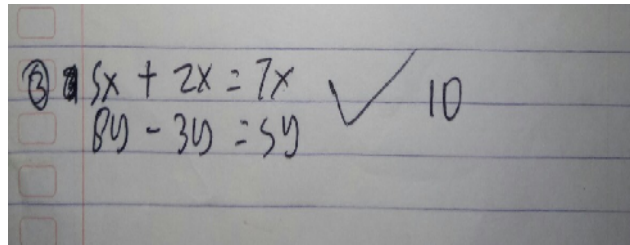 ③ 5x + 2x = 7x ✓ 10
8y - 3y = 5y